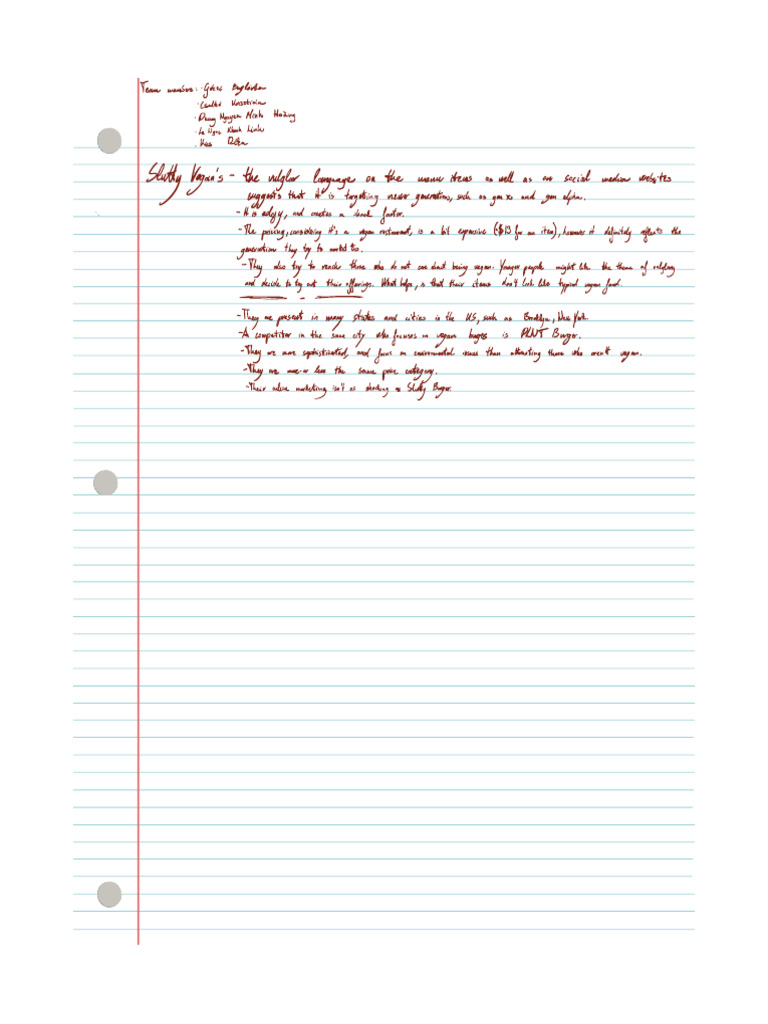 Team members:
Dang Nguyen Minh Hoang
Le Ngoc Khanh Linh
Slutty Vegan's - the vulglar language on the menu items as well as on social medium websites
suggests that it is targeting newer generations, such as gen xs and gen alpha.
- It is edgy, and creates a shock factor.
- The pricing, considering it's a vegan restaurant, is a bit expensive (~$13 for an item), however it definitely reflects the
generation they try to market to.
- They also try to reach those who do not care about being vegan. Younger people might like the theme of
and decide to try out their offerings. What helps, is that their items don't look like typical vegan food.
- They are present in many states and cities in the US, such as Brooklyn, New York.
- A competitor in the same city who focuses on vegan burgers is PLNT Burger.
- They are more sophisticated, and focus on environmental issues than attracting those who aren't vegan.
- They are more or less the same price category.
- Their online marketing isn't as shocking as Slutty Burger.